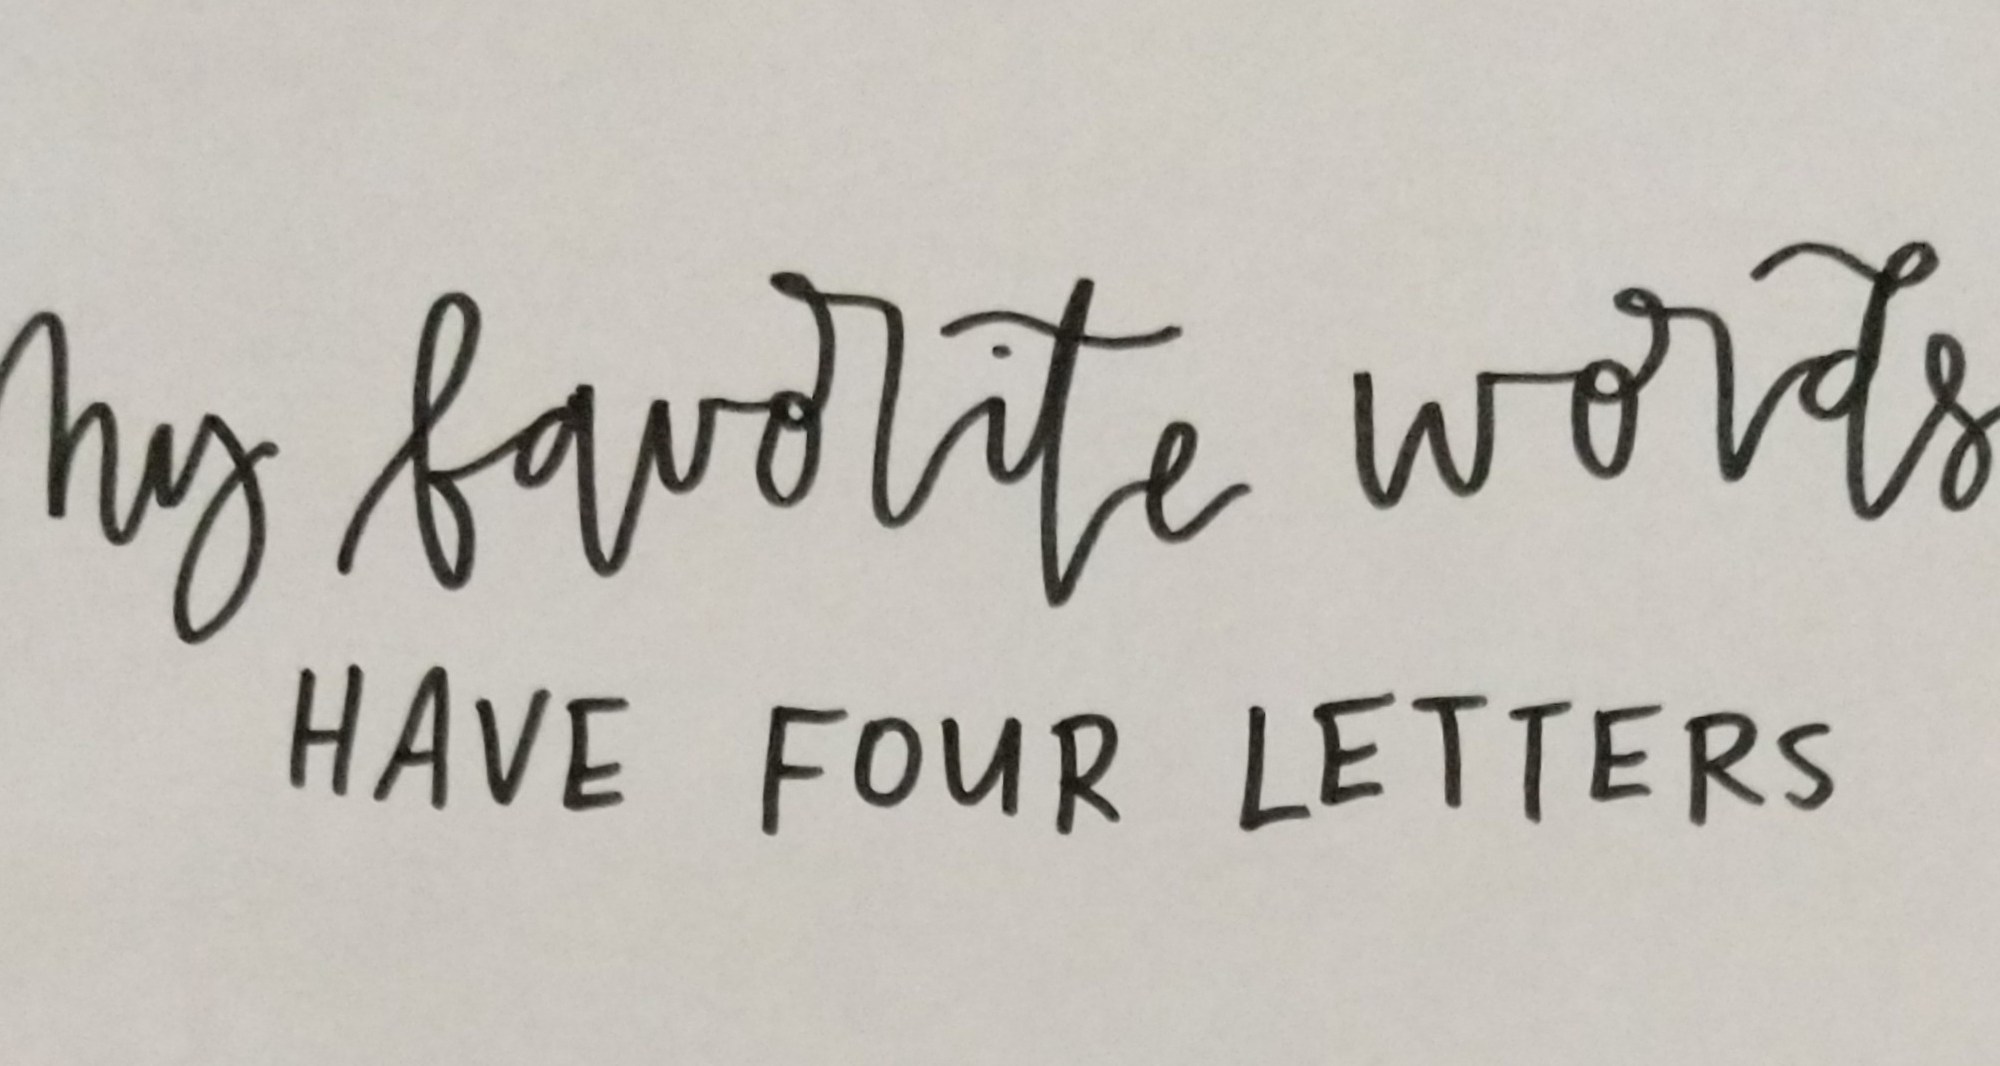 My favorite words
HAVE FOUR LETTERS